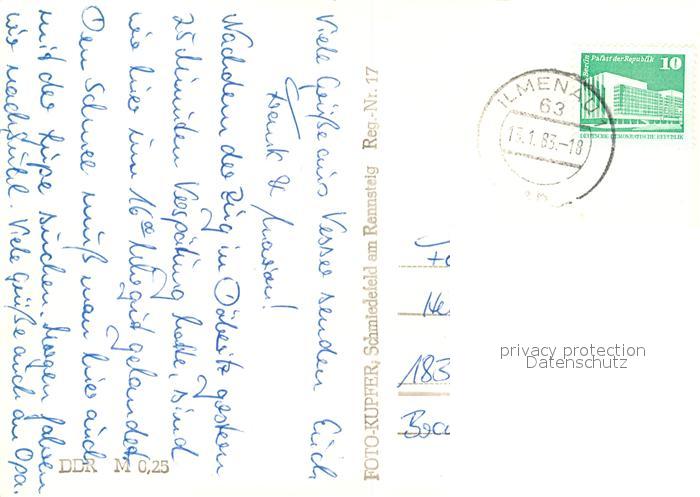 Viele Grüße aus Vesser senden Euch
Frank & Marion!
Nachdem der Zug in Döberitz gestern
25 Minuten Verspätung hatte, sind
wir hier um 16⁰⁰ Uhr gut gelandet.
Den Schnee muß man hier auch
mit der Lupe suchen. Morgen fahren
wir nach Suhl. Viele Grüße auch an Opa.
DDR M 0,25
FOTO-KUPFER, Schmiedefeld am Rennsteig Reg.-Nr. 17
Berlin Palast der Republik 10
DEUTSCHE DEMOKRATISCHE REPUBLIK
ILMENAU
63
13.1.83.-18
183
privacy protection
Datenschutz